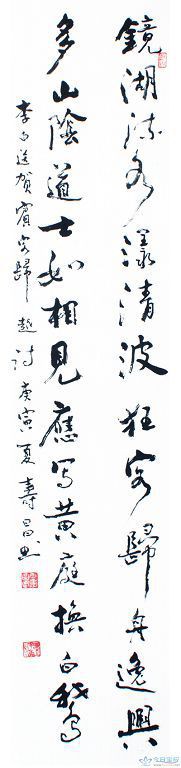 鏡湖流水漾清波狂客歸舟逸興
多山陰道士如相見應写黄庭換白鵝
李白送贺賓客歸越詩庚寅夏壽昌书